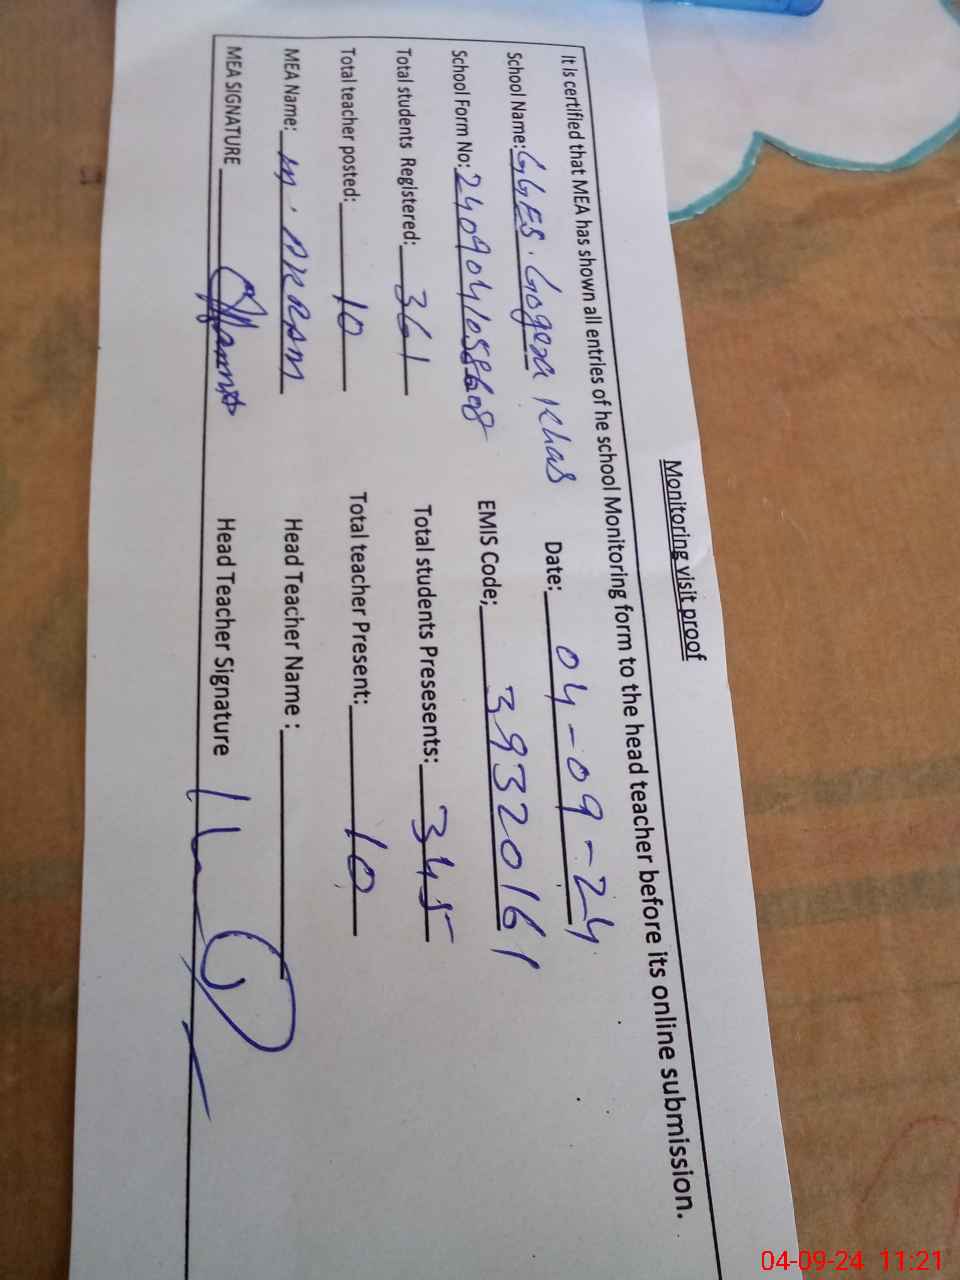 Monitoring visit proof
It is certified that MEA has shown all entries of he school Monitoring form to the head teacher before its online submission.
School Name: GGES. Gogera Khas Date: 04-09-24
School Form No: 2409041058608 EMIS Code; 39320161
Total students Registered: 361 Total students Presesents: 345
Total teacher posted: 10 Total teacher Present: 10
MEA Name: M. AKRAM Head Teacher Name :
MEA SIGNATURE Head Teacher Signature
04-09-24 11:21